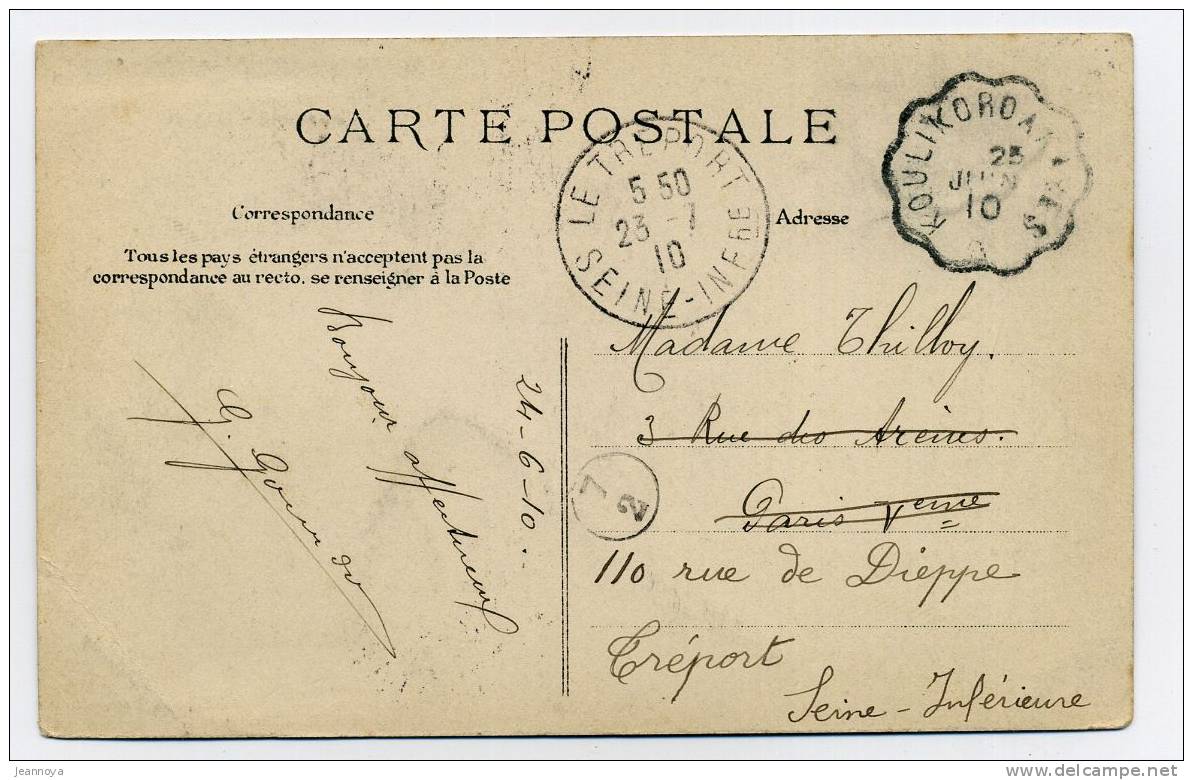 CARTE POSTALE
KOULIKORO A KAYES
25
JUIN
10
LE TREPORT
5 50
23 -7
10
SEINE-INFRE
Correspondance
Adresse
Tous les pays étrangers n'acceptent pas la
correspondance au recto, se renseigner à la Poste
24-6-10.
Bonjour affectueux
G.
Madame Thilloy.
3 Rue des Arènes.
Paris Veme
7
2
110 rue de Dieppe
Tréport
Seine-Inférieure
jeannoya
www.delcampe.net